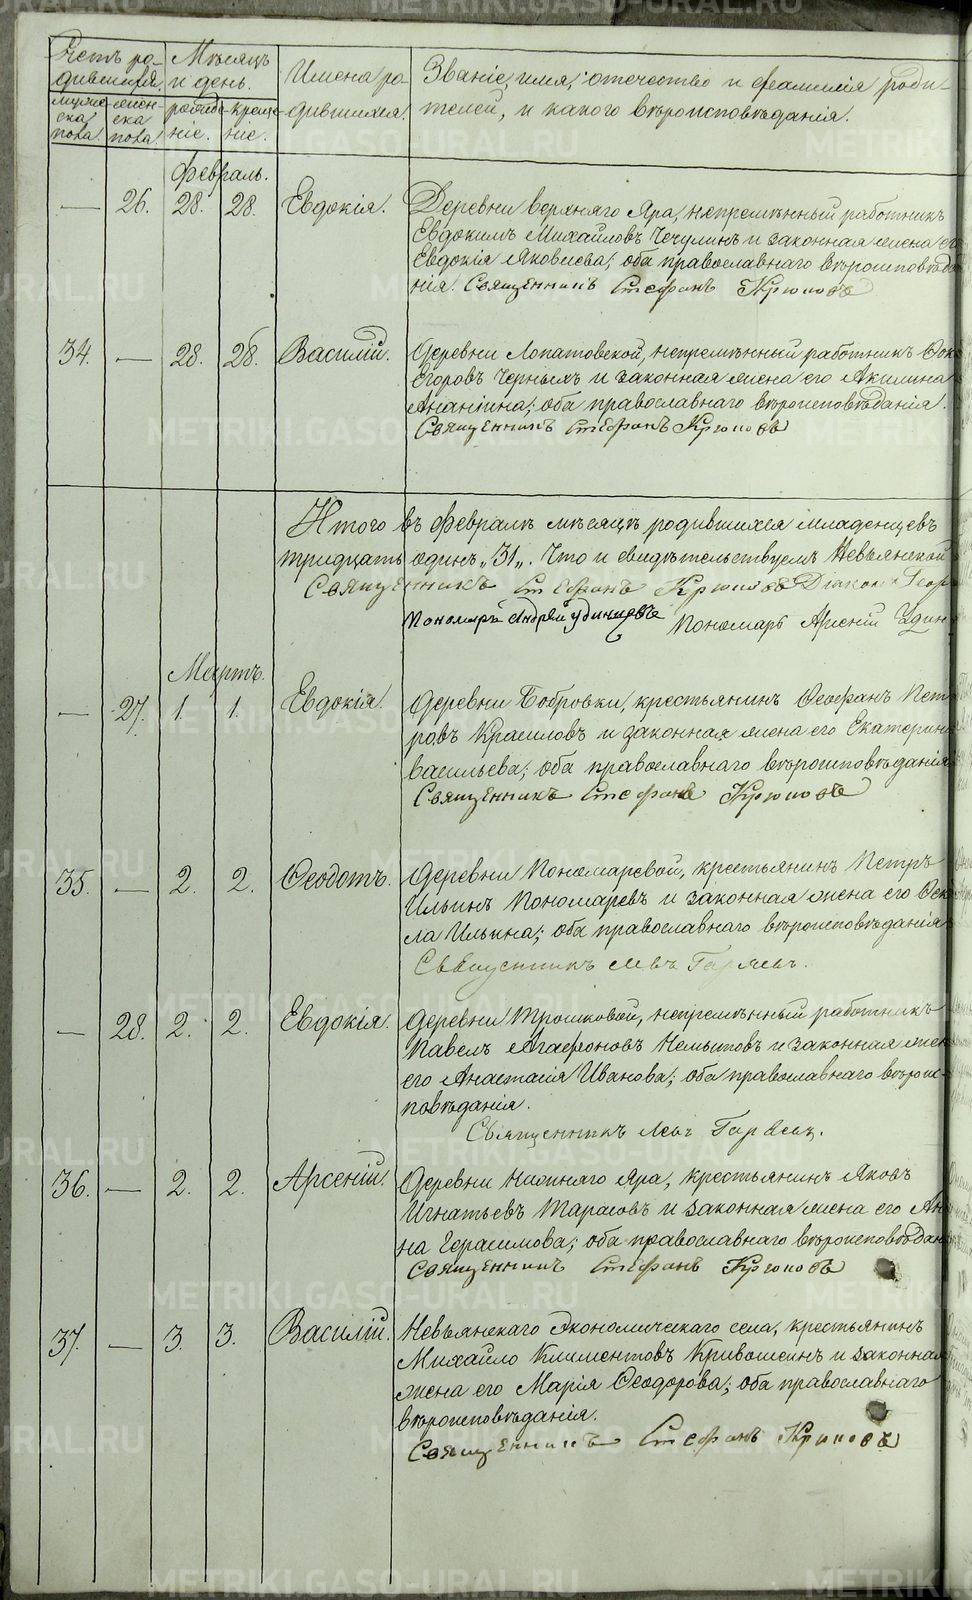 Счетъ ро-
дившихся.
Мѣсяцъ
и день.
Имена ро-
дившихся.
Званіе, имя, отечество и фамилія роди-
телей, и какого вѣроисповѣданія.
муже-
ска
пола.
жен-
ска
пола.
рожде-
ніе.
креще-
ніе.
Февраль.
— 26. 28. 28. Евдокія. Деревни Верхняго Яра, непремѣнный работникъ
Евдокимъ Михайловъ Чечулинъ и законная жена его
Евдокія Яковлева; оба православнаго вѣроисповѣда
нія. Священникъ Стефанъ Крюковъ
34. — 28. 28. Василій. Деревни Лопатовской, непремѣнный работникъ
Егоровъ Черныхъ и законная жена его Акилина
Ананіина; оба православнаго вѣроисповѣданія.
Священникъ Стефанъ Крюковъ
Итого въ февралѣ мѣсяцѣ родившихся младенцевъ
тридцать одинъ „31„. Что и свидѣтельствуемъ Невьянской
Священникъ Стефанъ Крюковъ Діаконъ Геор
Пономарь Андрей Удинцевъ Пономарь Арсеній Удин
Мартъ.
— 27. 1. 1. Евдокія. Деревни Бобровки, крестьянинъ Ѳеофанъ Пет
ровъ Красиловъ и законная жена его Екатерина
Васильева; оба православнаго вѣроисповѣданія
Священникъ Стефанъ Крюковъ
35. — 2. 2. Ѳеодотъ. Деревни Пономаревой, крестьянинъ Петръ
Ильинъ Пономаревъ и законная жена его Ѳек
ла Ильина; оба православнаго вѣроисповѣданія
Священникъ Левъ Гаряевъ.
— 28. 2. 2. Евдокія. Деревни Трошковой, непремѣнный работникъ
Павелъ Агафоновъ Немытовъ и законная жен
его Анастасія Иванова; оба православнаго вѣроис-
повѣданія.
Священникъ Левъ Гаряевъ.
36. — 2. 2. Арсеній. Деревни Нижняго Яра, крестьянинъ Яковъ
Игнатьевъ Тарасовъ и законная жена его Ан
на Герасимова; оба православнаго вѣроисповѣдан
Священникъ Стефанъ Крюковъ
37. — 3. 3. Василій. Невьянскаго Экономическаго села, крестьянинъ
Михайло Климентовъ Кривошеинъ и законная
жена его Марія Ѳеодорова; оба православнаго
вѣроисповѣданія.
Священникъ Стефанъ Крюковъ